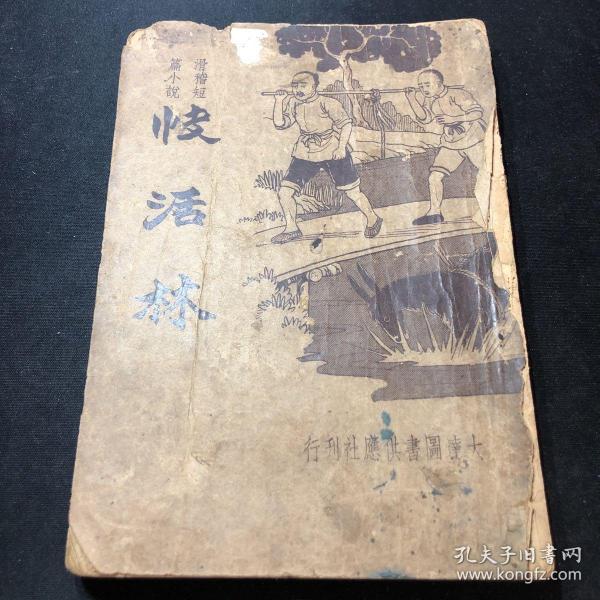 滑稽短
篇小說
快活林
大達圖書供應社刊行
孔夫子旧书网
www.kongfz.com